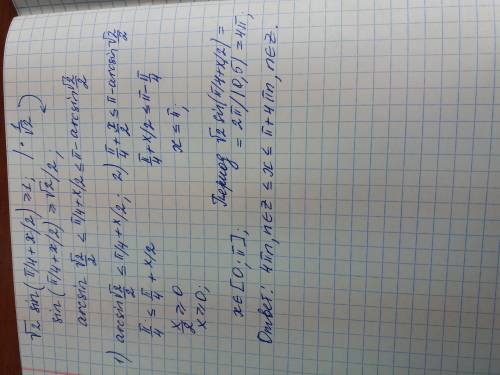 √2 sin(π/4+x/2) ≥ 1; | · 1/√2
sin(π/4+x/2) ≥ √2/2;
arcsin √2/2 ≤ π/4+x/2 ≤ π-arcsin √2/2
1) arcsin √2/2 ≤ π/4+x/2; 2) π/4+x/2 ≤ π-arcsin √2/2
π/4 ≤ π/4+x/2 π/4+x/2 ≤ π-π/4
x/2 ≥ 0 x ≤ π;
x ≥ 0;
x∈[0;π]; Период √2 sin(π/4+x/2) =
= 2π/(0,5) = 4π;
Ответ: 4πn, n∈z ≤ x ≤ π+4πn, n∈z.